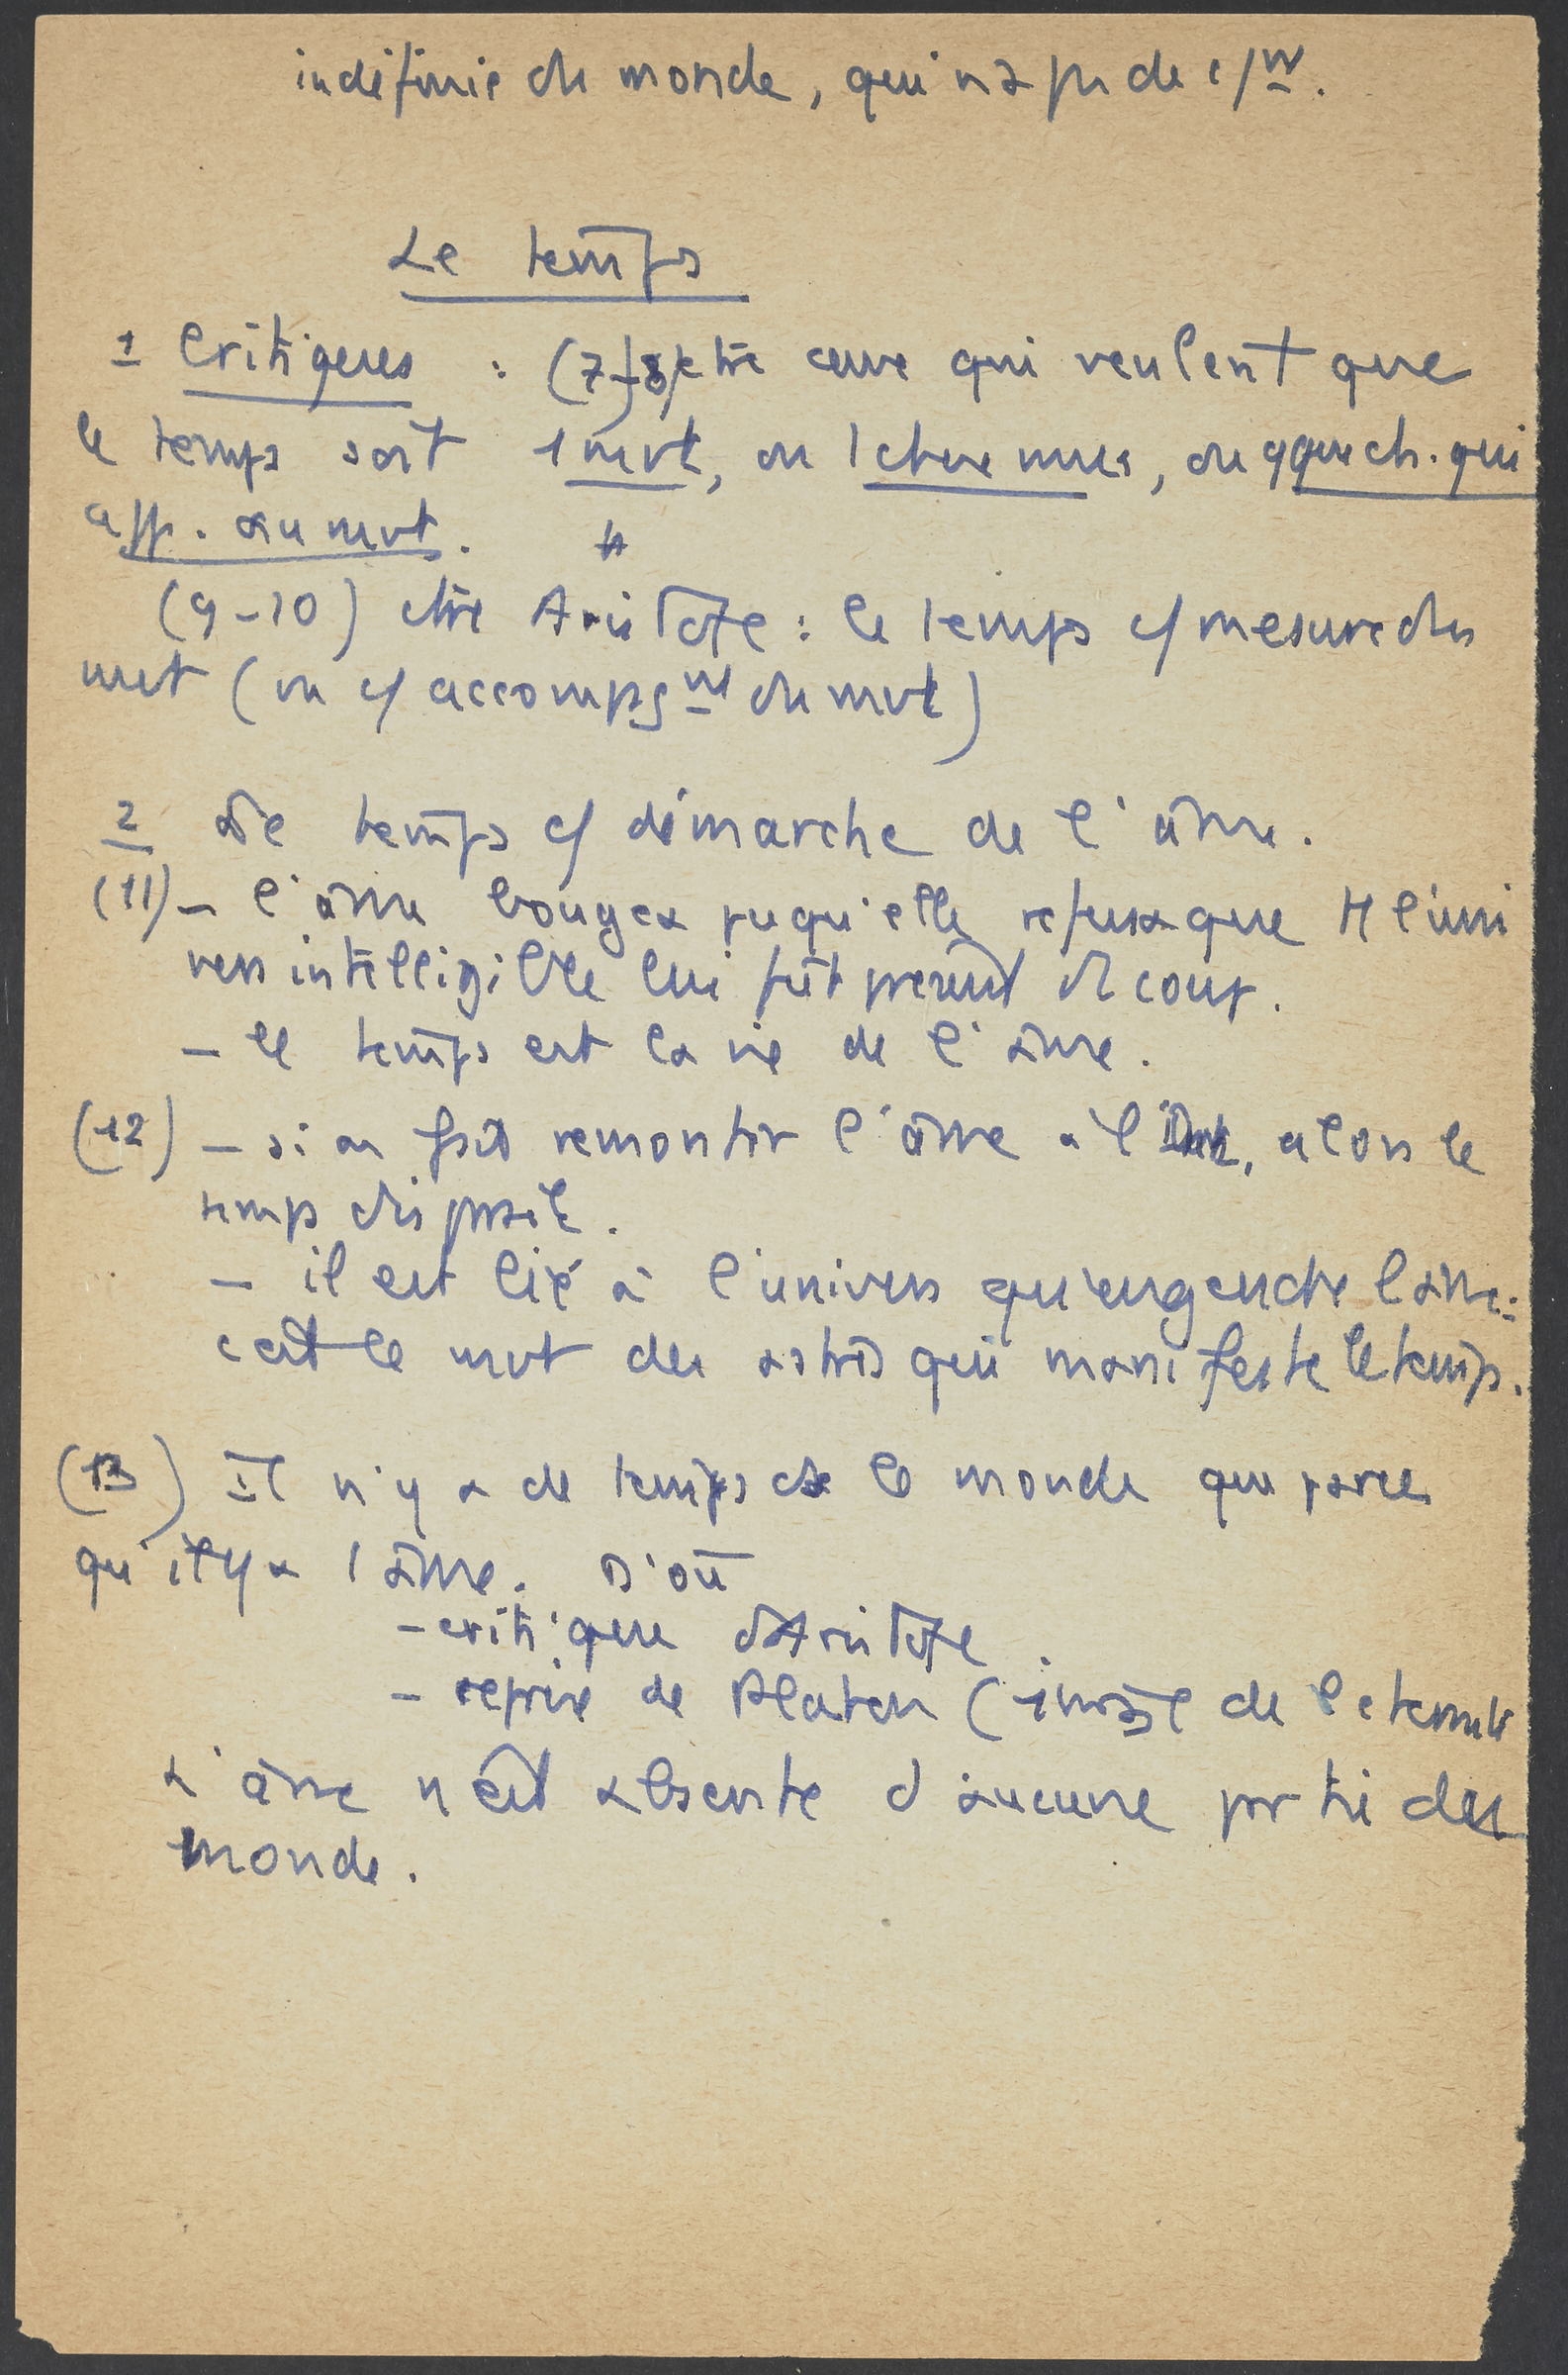 indéfinie du monde, qui n'a pas de c/mt.
Le temps
1 Critiques : (7-8) ctre ceux qui veulent que
le temps soit 1 mvt, ou 1 chose mue, ou qque ch. qui
app. au mvt.
(9-10) ctre Aristote : le temps c/ mesure du
mvt (ou c/ accompagnt du mvt)
2 Le temps c/ démarche de l'âme.
(11) - l'âme bougea puqu'elle refusa que tt l'uni
vers intelligible lui fût présent d'1 coup.
- le temps est la vie de l'âme.
(12) - si on fait remonter l'âme à l' alors le
temps disparaît.
- il est lié à l'univers qu'engendre l'âme :
c'est le mvt des astres qui manifeste le temps.
(13) Il n'y a de temps ds le monde que parce
qu'il y a 1 âme. D'où
- critique d'Aristote
- reprise de Platon (image de l'éternité
L'âme n'est absente d'aucune partie du
monde.